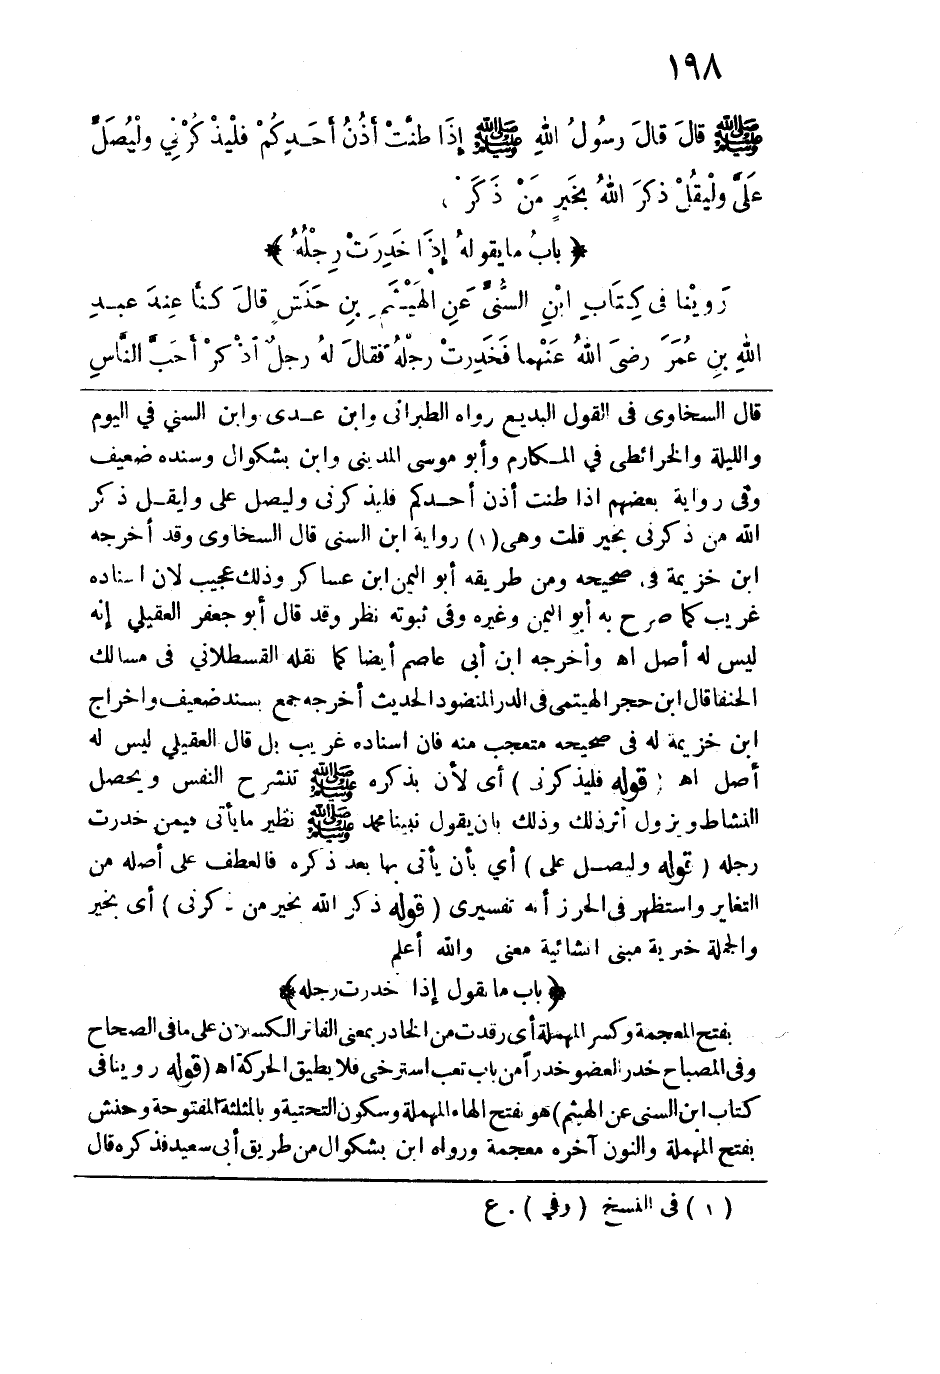 ١٩٨
ﷺ قالَ قالَ رسولُ اللهِ ﷺ إذَا طنَّتْ أذُنُ أحَـدِكُمْ فلْيذْكُرْنِي ولْيُصَلِّ
عَلَيَّ ولْيقُلْ ذكرَ اللهُ بخَيرٍ مَنْ ذَكَرَ
﴿ بابُ ما يقولهُ إذَا خَدِرَتْ رِجْلُهُ ﴾
رَوينَا فى كِتَابِ ابْنِ السُّنِّيِّ عَنِ الْهَيْثَمِ بنِ حَنَشٍ قالَ كنَّا عِندَ عبـدِ
اللهِ بنِ عُمَرَ رضىَ اللهُ عَنْهما فَخَدِرتْ رجلهُ فقالَ لهُ رجلٌ اذْكرْ أحَبَّ النَّاسِ
قال السخاوى فى القول البديع رواه الطبرانى وابن عـدى وابن السني في اليوم
والليلة والخرائطى في المـكارم وأبو موسى المدينى وابن بشكوال وسنده ضعيف
وفى رواية بعضهم اذا طنت أذن أحـدكم فليذكرنى وليصل على وليقـل ذكر
الله من ذكرنى بخير قلت وهى (١) رواية ابن السنى قال السخاوى وقد أخرجه
ابن خزيمة فى صحيحه ومن طريقه أبو اليمن ابن عساكر وذلك عجيب لان اسناده
غريب كما صرح به أبو اليمن وغيره وفى ثبوته نظر وقد قال أبو جعفر العقيلي إنه
ليس له أصل اه وأخرجه ابن أبى عاصم أيضا كما نقله القسطلاني فى مسالك
الحنفا قال ابن حجر الهيتمى فى الدر المنضود الحديث أخرجه جمع بسند ضعيف واخراج
ابن خزيمة له فى صحيحه متعجب منه فان اسناده غريب بل قال العقيلي ليس له
أصل اه ( قوله فليذكرنى ) أى لأن بذكره ﷺ تنشرح النفس ويحصل
النشاط ويزول أثر ذلك وذلك بان يقول نبينا محمد ﷺ نظير ما يأتى فيمن خدرت
رجله ( قوله وليصـل على ) أي بأن يأتى بها بعد ذكره فالعطف على أصله من
التغاير واستظهر فى الحرز أنه تفسيرى ( قوله ذكر الله بخير من ذكرنى ) أى بخير
والجملة خبرية مبنى انشائية معنى والله أعلم
﴿ باب ما يقول إذا خدرت رجله ﴾
بفتح المعجمة وكسر المهملة أى رقدت من الخادر بمعنى الفاتر الكسلان على ما فى الصحاح
وفى المصباح خدر العضو خدراً من باب تعب استرخى فلا يطيق الحركة اه ( قوله روينا فى
كتاب ابن السنى عن الهيثم ) هو بفتح الهاء المهملة وسكون التحتية وبالمثلثة المفتوحة وحنش
بفتح المهملة والنون آخره معجمة ورواه ابن بشكوال من طريق أبى سعيد فذكره قال
( ١ ) فى النسخ ( وفي ) . ع